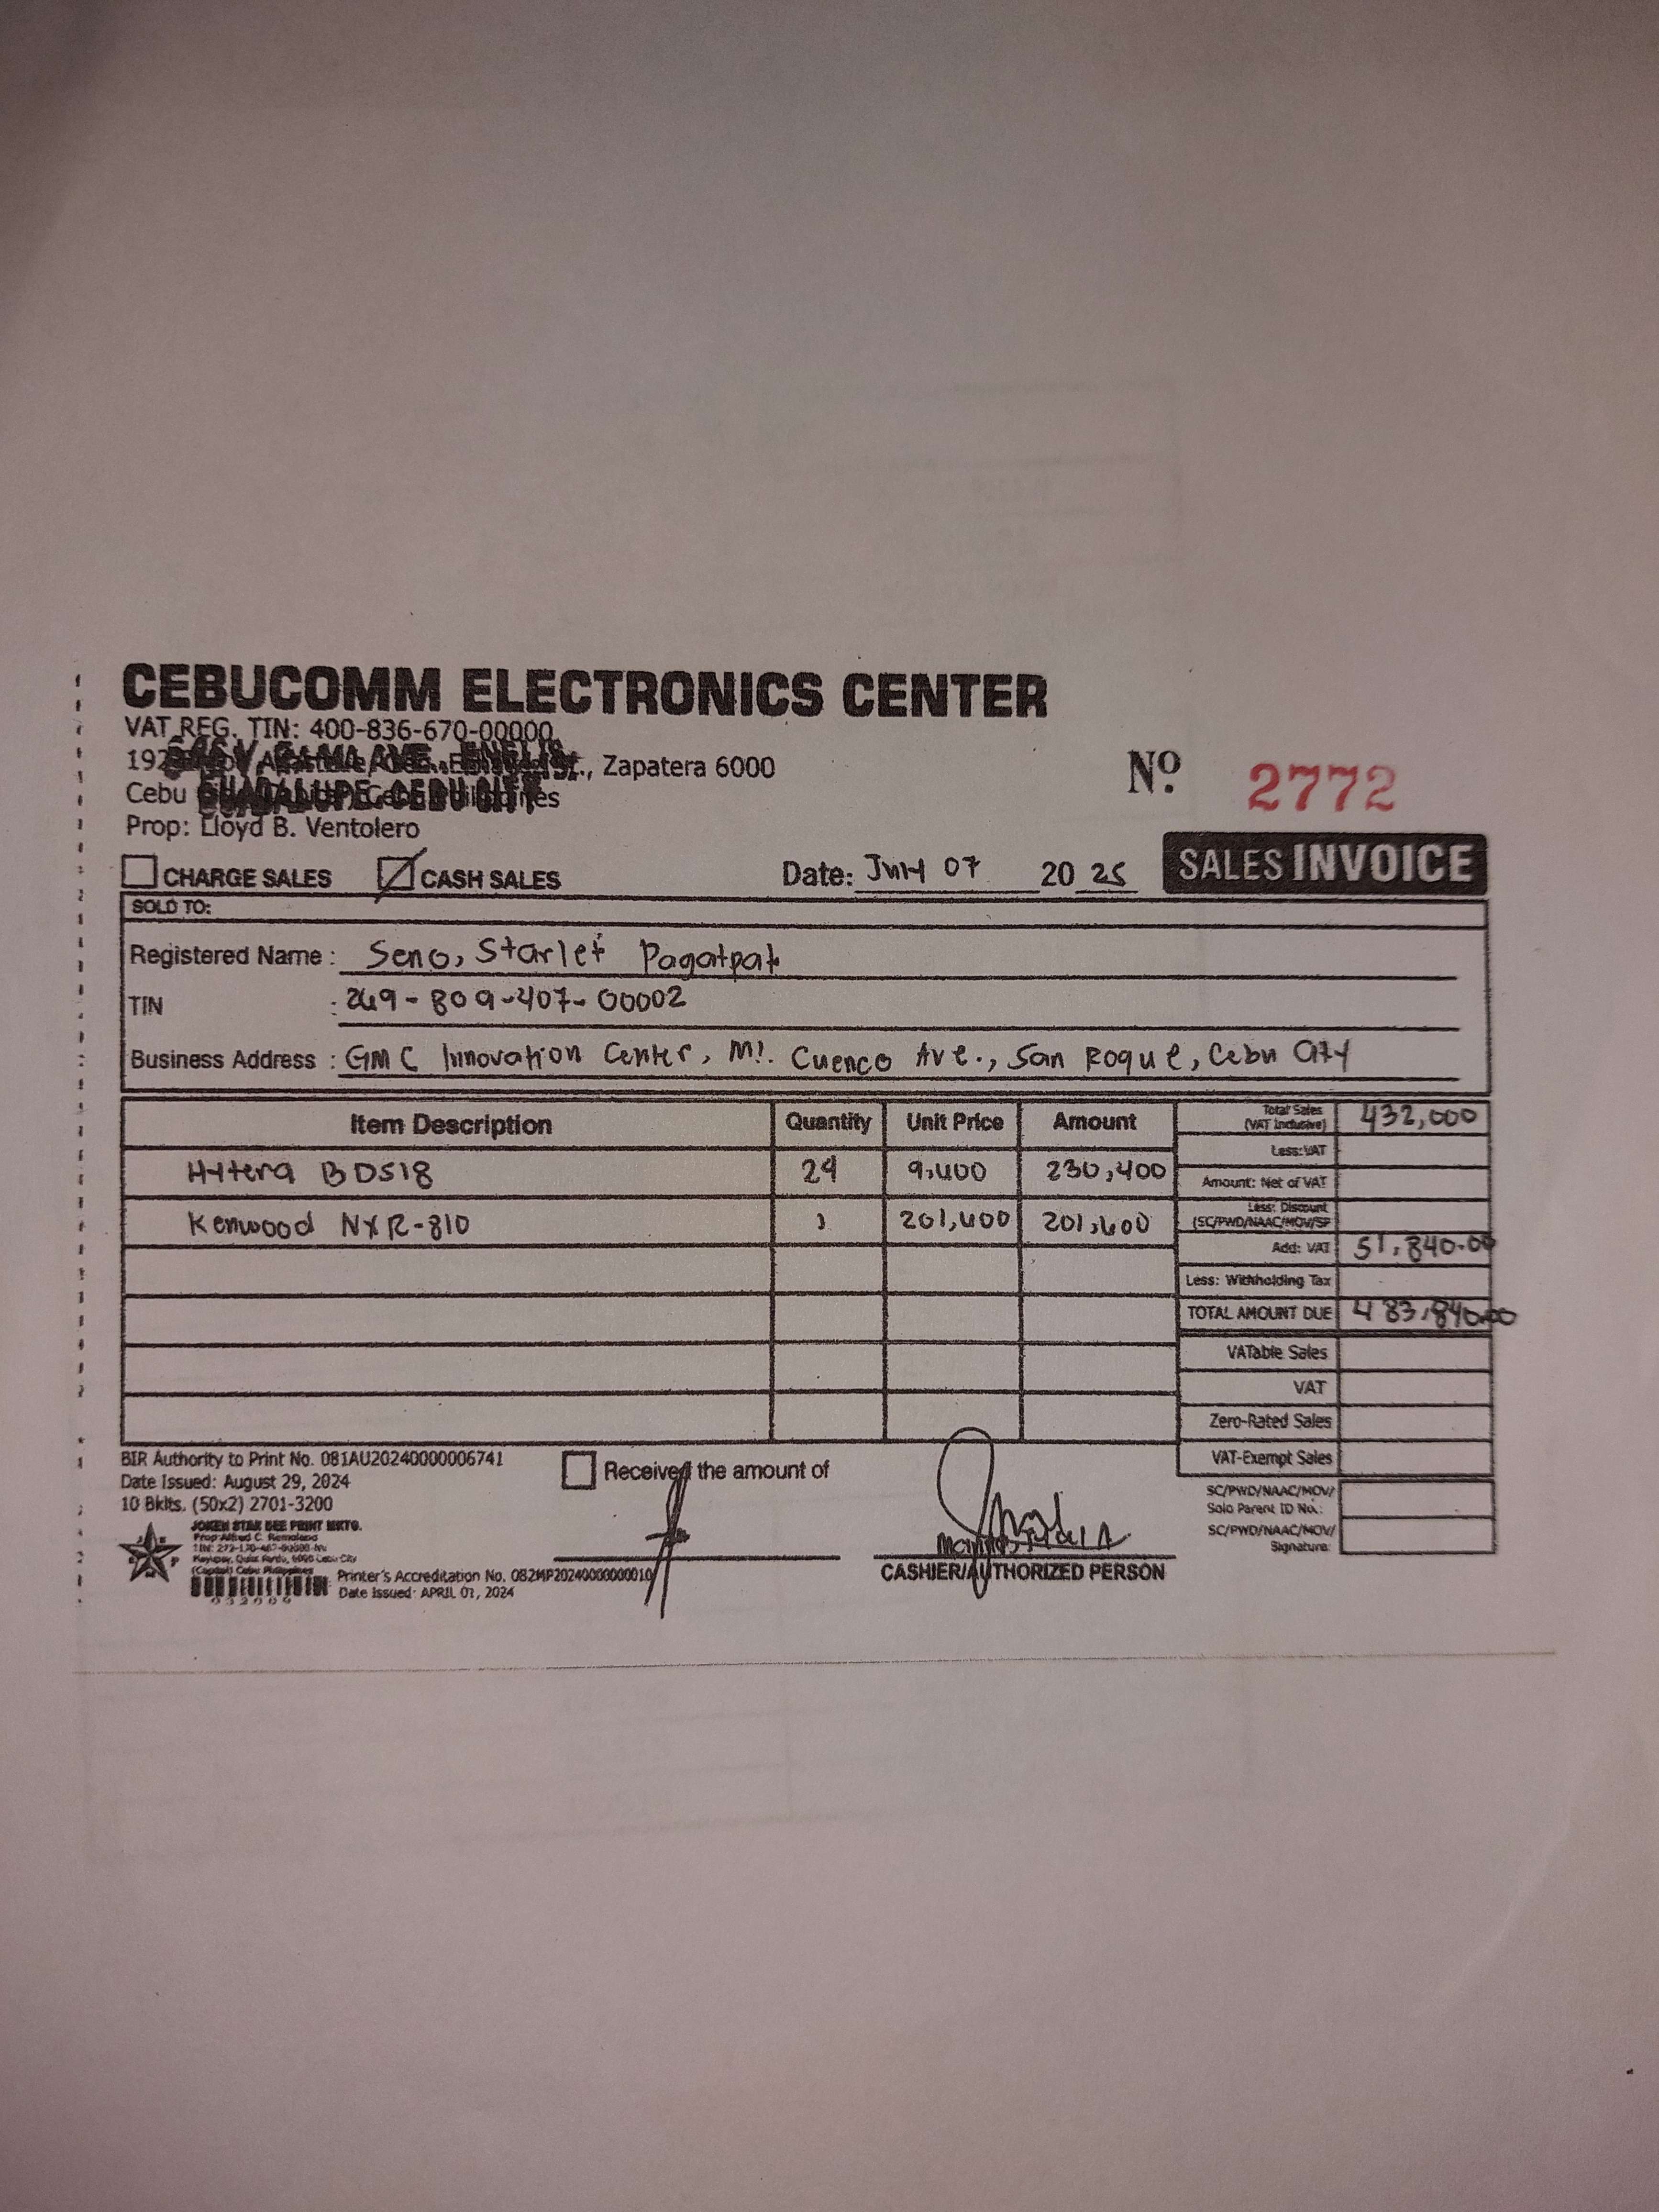 CEBUCOMM ELECTRONICS CENTER
VAT REG. TIN: 400-836-670-00000
192 St., Zapatera 6000
Cebu Philippines
GUADALUPE, CEBU CITY
Prop: Lloyd B. Ventolero
Nº 2772
CHARGE SALES CASH SALES Date: July 07 20 25 SALES INVOICE
SOLD TO:
Registered Name : Seno, Starlet Pagatpat
TIN : 249-809-407-00002
Business Address : GMC Innovation Center, MJ. Cuenco Ave., San Roque, Cebu City
Item Description Quantity Unit Price Amount
Hytera BD518 24 9,600 230,400
Kenwood NXR-810 1 201,600 201,600
Total Sales (VAT Inclusive) 432,000
Less: VAT
Amount: Net of VAT
Less: Discount
(SC/PWD/NAAC/MOV/SP
Add: VAT 51,840.00
Less: Withholding Tax
TOTAL AMOUNT DUE 483,840.00
VATable Sales
VAT
Zero-Rated Sales
VAT-Exempt Sales
SC/PWD/NAAC/MOV/
Solo Parent ID No.:
SC/PWD/NAAC/MOV/
Signature:
BIR Authority to Print No. 081AU20240000006741
Date Issued: August 29, 2024
10 Bklts. (50x2) 2701-3200
JOKEN STAR BEE PRINT MKTG.
Prop: Alfred C.
Printer's Accreditation No. 082MP20240000000010
Date Issued: APRIL 01, 2024
Received the amount of
CASHIER/AUTHORIZED PERSON